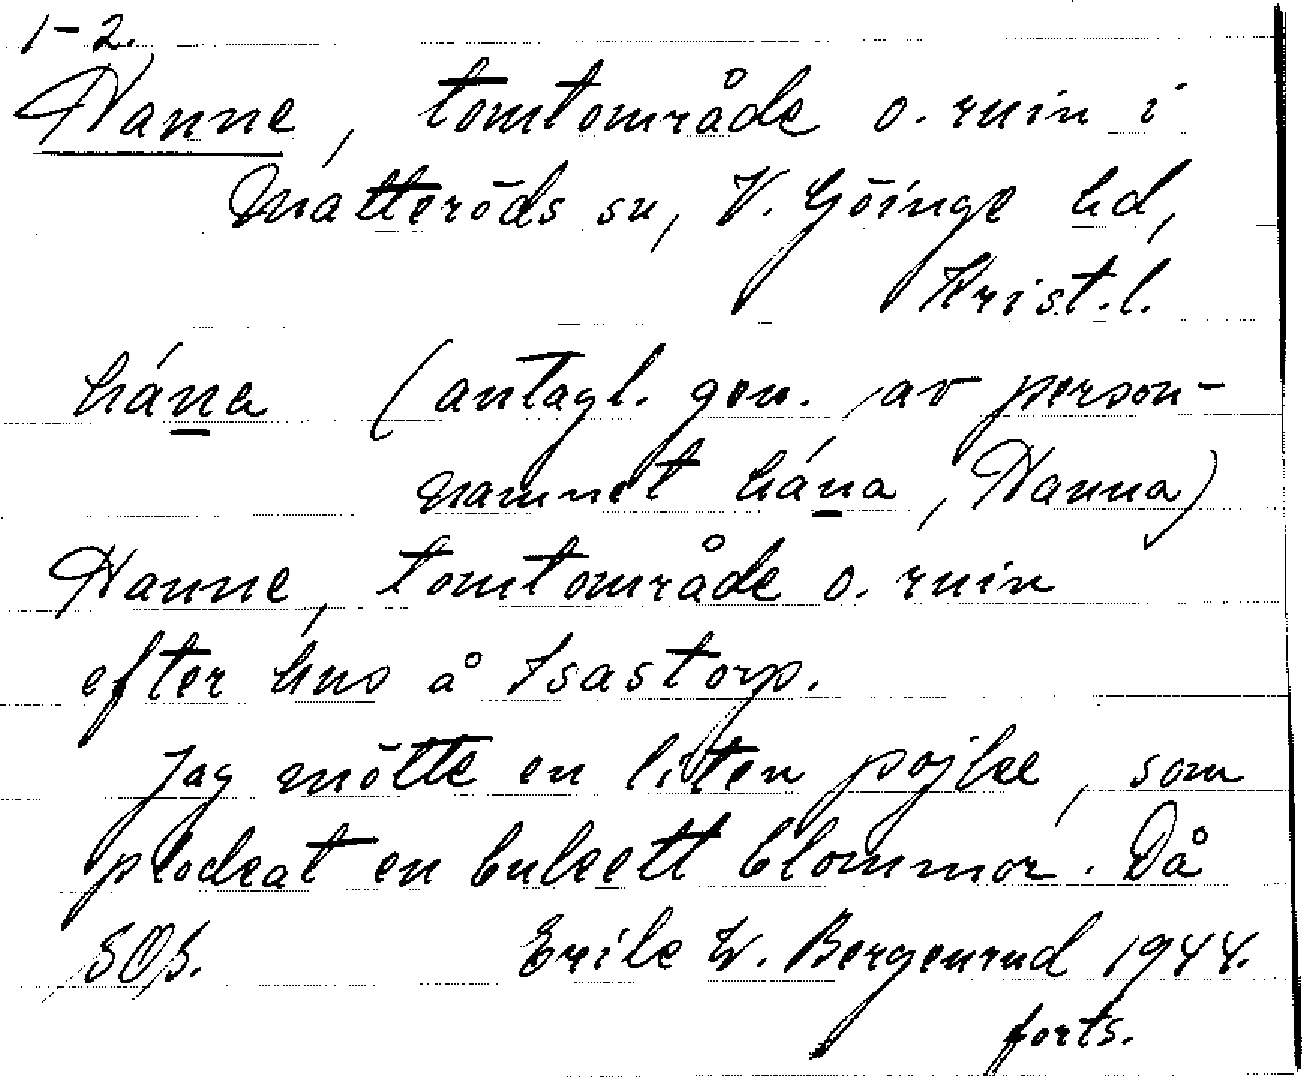 1-2.
Hanne, tomtområde o. ruin i
Matteröds sn, V. Göinge hd,
Krist.l.
hána (antagl. gen. av person-
namnet hána, Hanna)
Hanne, tomtområde o. ruin
efter hus å Isastorp.
Jag mötte en liten pojke, som
plockat en bukett blommor. Då
SOS. Erik W. Bergenrud 1944.
forts.